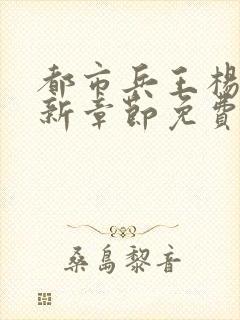 都市兵王杨
新章节免费
桑岛黎音